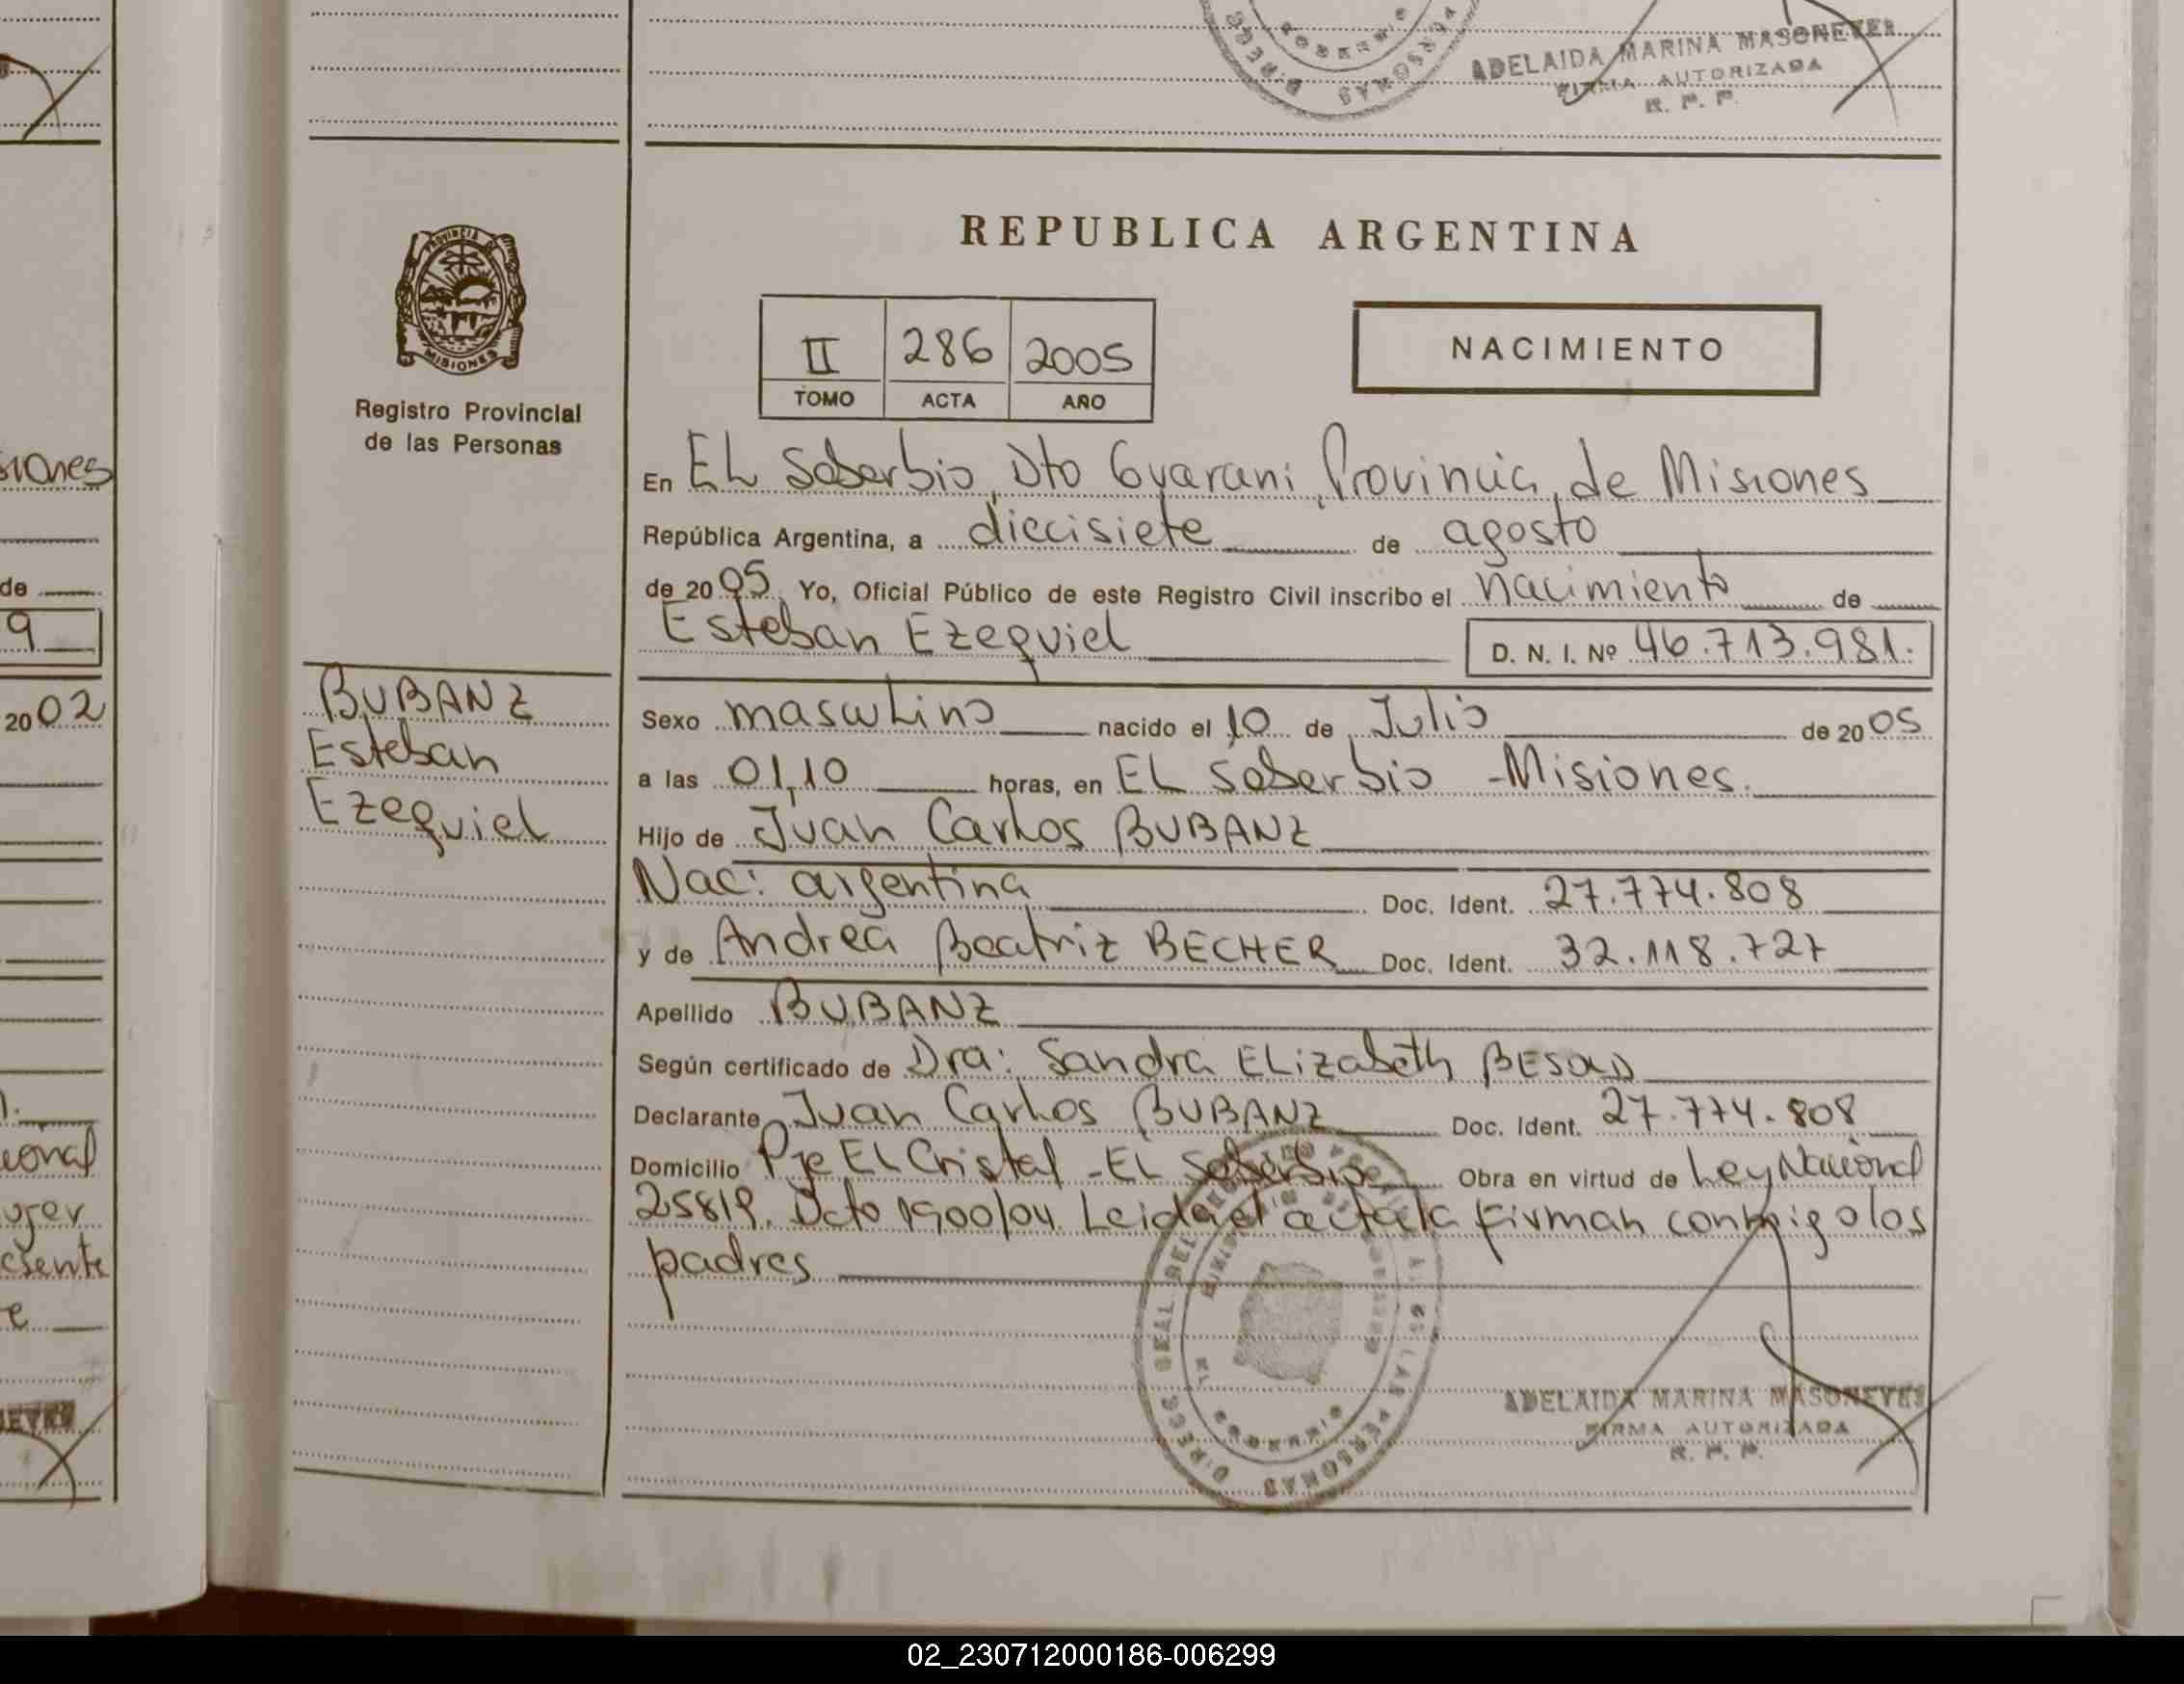 ADELAIDA MARINA MASONEYEB
FIRMA AUTORIZADA
R. P. P.
REPUBLICA ARGENTINA
PROVINCIA DE
MISIONES
Registro Provincial
de las Personas
II 286 2005
TOMO ACTA AÑO
NACIMIENTO
En EL Soberbio, Dto Guarani, Provincia, de Misiones
República Argentina, a diecisiete de agosto
de 2005. Yo, Oficial Público de este Registro Civil inscribo el nacimiento de
Esteban Ezequiel D. N. I. Nº 46.713.981.
BUBANZ
Esteban
Ezequiel
Sexo masculino nacido el 10 de Julio de 2005
a las 01,10 horas, en EL Soberbio -Misiones.
Hijo de Juan Carlos BUBANZ
Nac: argentina Doc. Ident. 27.774.808
y de Andrea Beatriz BECHER Doc. Ident. 32.118.727
Apellido BUBANZ
Según certificado de Dra: Sandra ELizabeth BESOLD
Declarante Juan Carlos BUBANZ Doc. Ident. 27.774.808
Domicilio Pje EL Cristal -EL Soberbio Obra en virtud de Ley Nacional
25819. Dcto 1900/04. Leida el acta la firman conmigo los
padres
ADELAIDA MARINA MASONEYEB
FIRMA AUTORIZADA
R. P. P.
siones
de
9
2002
ional
csente
e
02_230712000186-006299